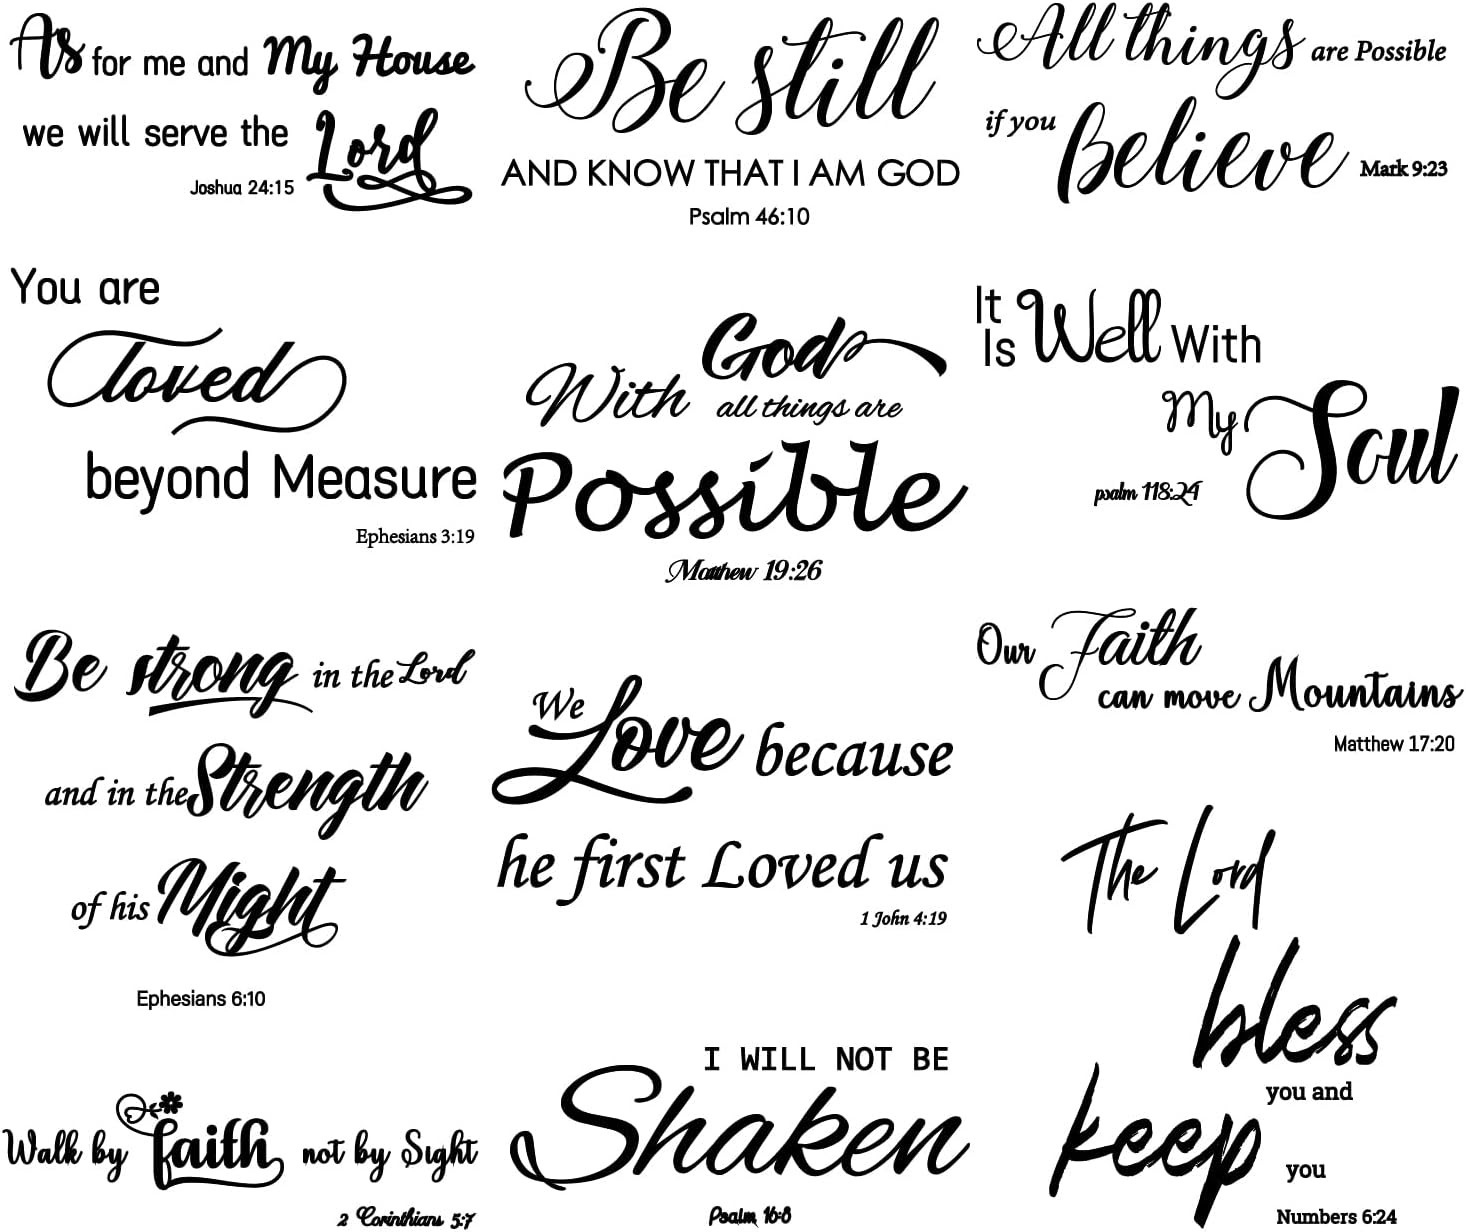 As for me and My House
we will serve the Lord
Joshua 24:15
Be still
AND KNOW THAT I AM GOD
Psalm 46:10
All things are Possible
if you Believe
Mark 9:23
You are
loved
beyond Measure
Ephesians 3:19
With God
all things are
Possible
Matthew 19:26
It
Is Well With
My Soul
psalm 118:24
Be strong in the Lord
and in the Strength
of his Might
Ephesians 6:10
We Love because
he first Loved us
1 John 4:19
Our Faith
can move Mountains
Matthew 17:20
The Lord
bless
you and
keep
you
Numbers 6:24
Walk by faith not by Sight
2 Corinthians 5:7
I WILL NOT BE
Shaken
Psalm 16:8